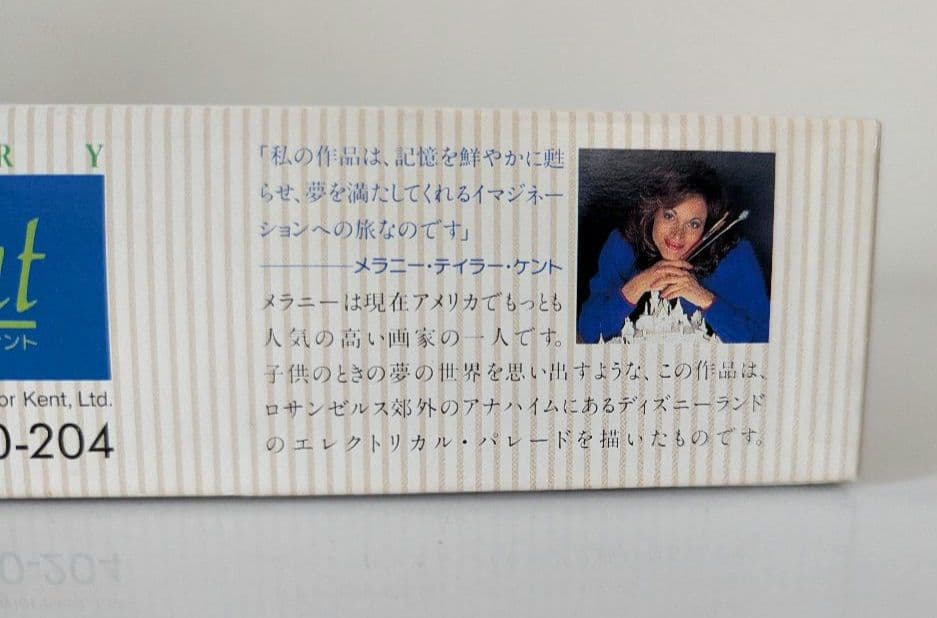 R Y
nt
ント
or Kent, Ltd.
0-204
「私の作品は、記憶を鮮やかに甦
らせ、夢を満たしてくれるイマジネー
ションへの旅なのです」
———メラニー・テイラー・ケント
メラニーは現在アメリカでもっとも
人気の高い画家の一人です。
子供のときの夢の世界を思い出すような、この作品は、
ロサンゼルス郊外のアナハイムにあるディズニーランド
のエレクトリカル・パレードを描いたものです。